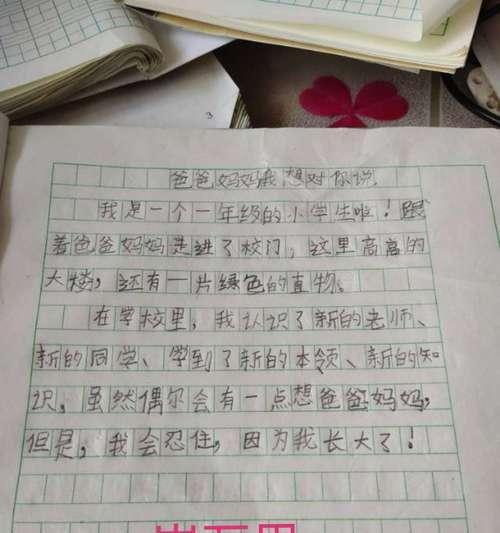 3
爸爸妈妈我想对你说
我是一个一年级的小学生啦！跟
着爸爸妈妈走进了校门，这里高高的
大楼，还有一片绿色的直物。
在学校里，我认识了新的老师、
新的同学、学到了新的本领、新的知
识，虽然偶尔会有一点想爸爸妈妈，
但是，我会忍住，因为我长大了！